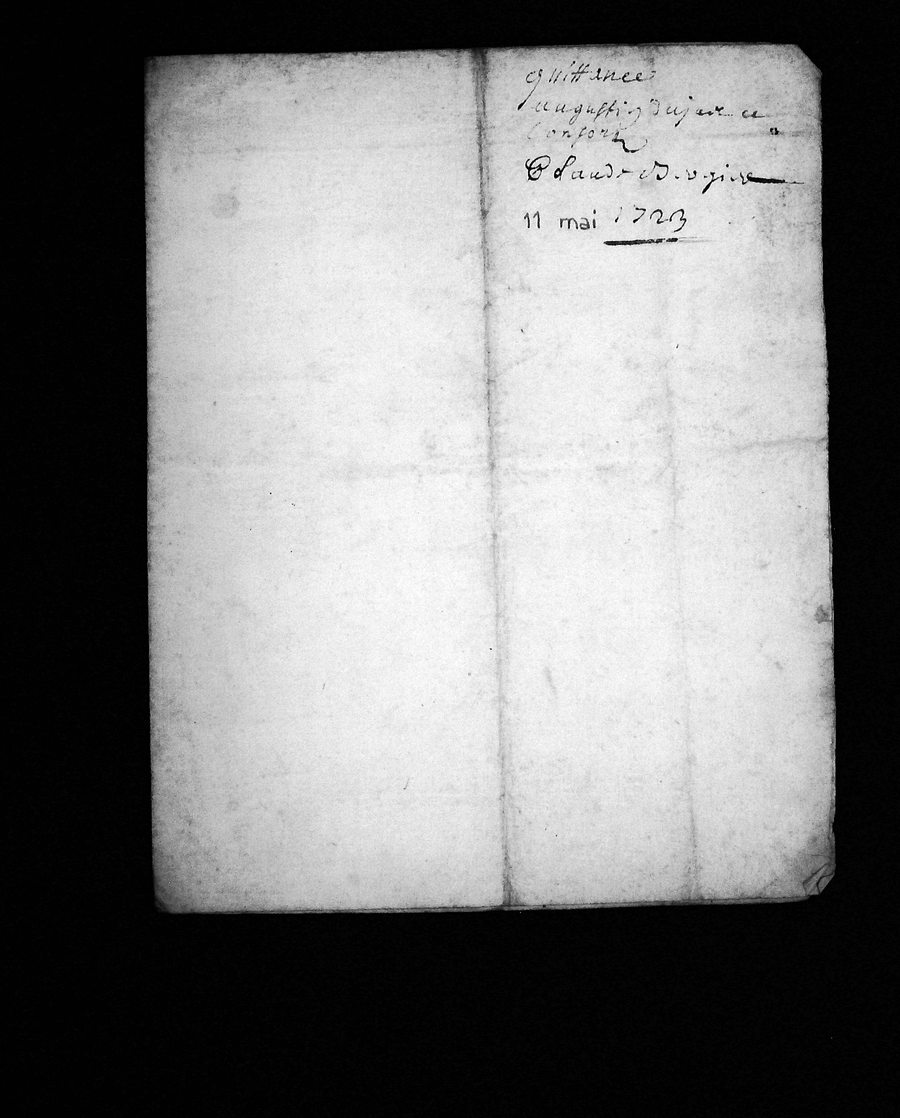 quittance
augustin dujar a
Consort
Claude Bergier
11 mai 1723